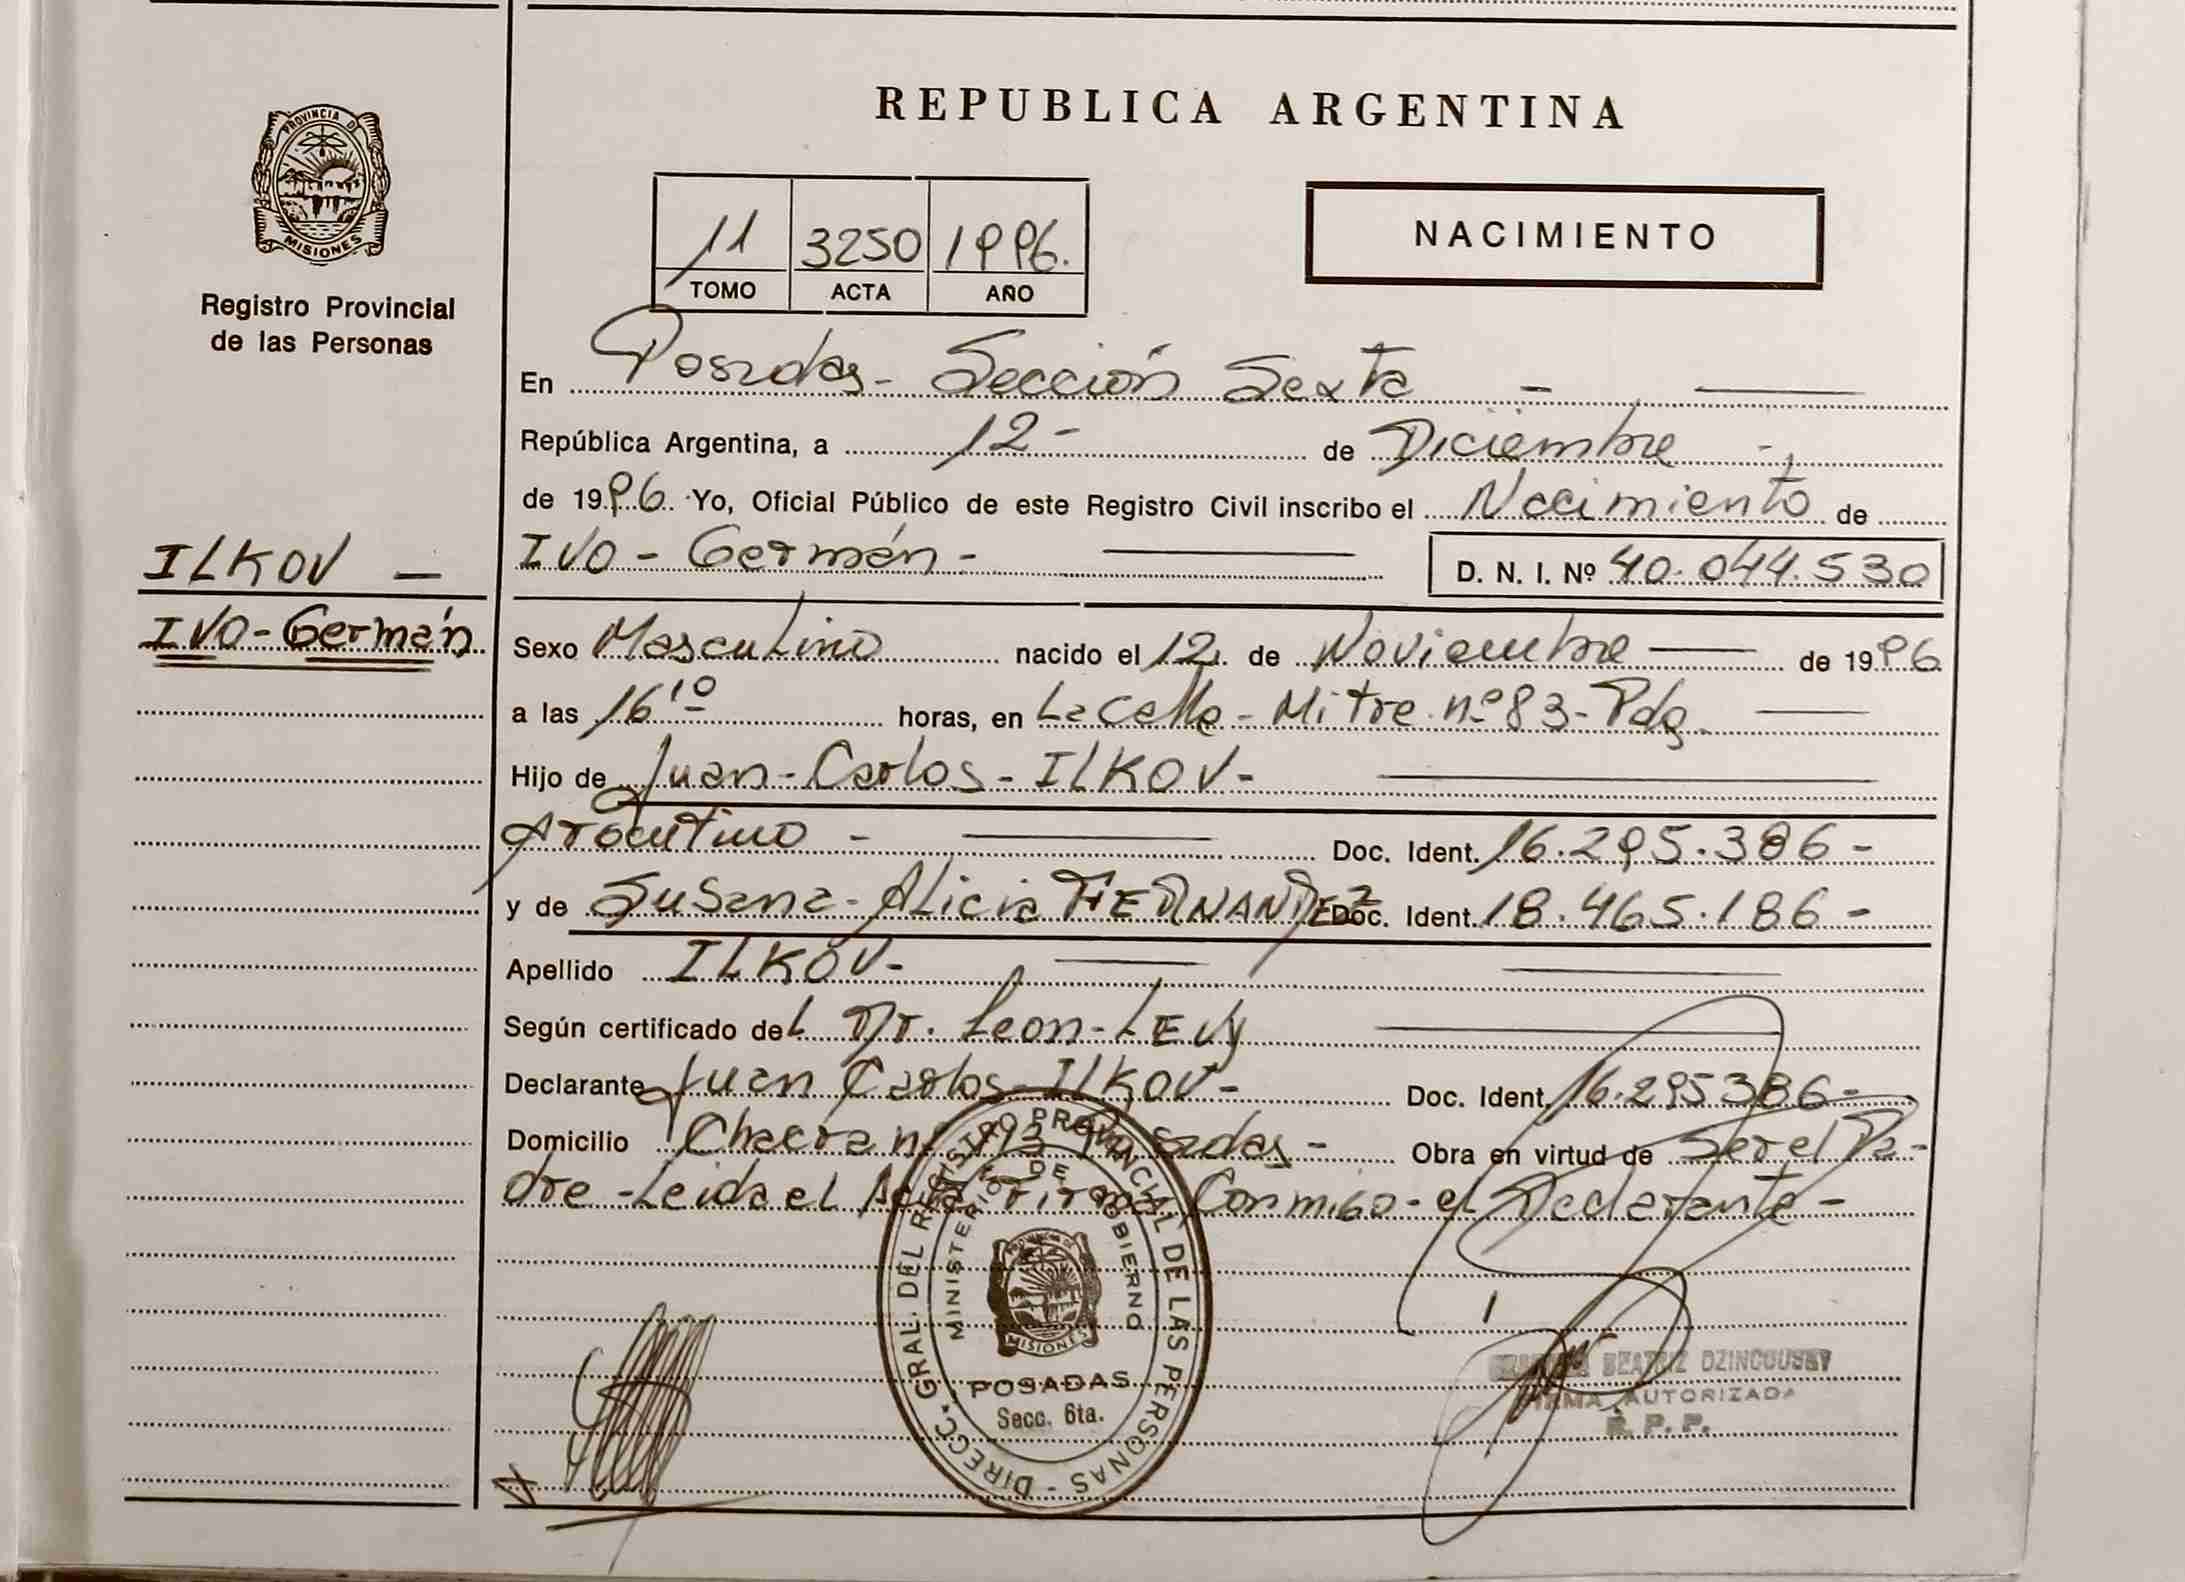 REPUBLICA ARGENTINA
PROVINCIA D
MISIONES
Registro Provincial
de las Personas
11 3250 1996.
TOMO ACTA AÑO
NACIMIENTO
En Posadas - Sección Sexta -
República Argentina, a 12 - de Diciembre -
de 1996. Yo, Oficial Público de este Registro Civil inscribo el Nacimiento de
IVO - Germán - D. N. I. Nº 40.044.530
ILKOV -
IVO - Germán
Sexo Masculino nacido el 12. de Noviembre de 1996
a las 16 10 horas, en La Calle - Mitre nº 83 - Pdas.
Hijo de Juan - Carlos - ILKOV -
Argentino - Doc. Ident. 16.295.386 -
y de Susana - Alicia FERNANDEZ Doc. Ident. 18.465.186 -
Apellido ILKOV -
Según certificado del Dr. Leon - LEVy
Declarante Juan Carlos - ILKOV - Doc. Ident. 16.295386 -
Domicilio Chacra nº 193 Posadas - Obra en virtud de Ser el Pa-
dre - Leida el Acta Firma Conmigo - el Declarante -
DIRECC. GRAL. DEL REGISTRO PROVINCIAL DE LAS PERSONAS -
MINISTERIO DE GOBIERNO
PROVINCIA DE
MISIONES
POSADAS
Secc. 6ta.
BEATRIZ DZINCOUSKY
FIRMA AUTORIZADA
R. P. P.